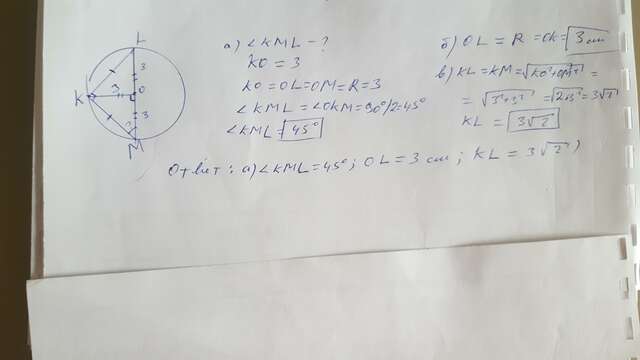 L
3
3
K
O
3
M
а) ∠KML - ?
KO = 3
KO = OL = OM = R = 3
∠KML = ∠OKM = 90°/2 = 45°
∠KML = 45°
б) OL = R = OK = 3 см
в) KL = KM = √KO²+OM² =
= √3²+3² = √2·3² = 3√2
KL = 3√2
Ответ: а) ∠KML = 45°; OL = 3 см; KL = 3√2